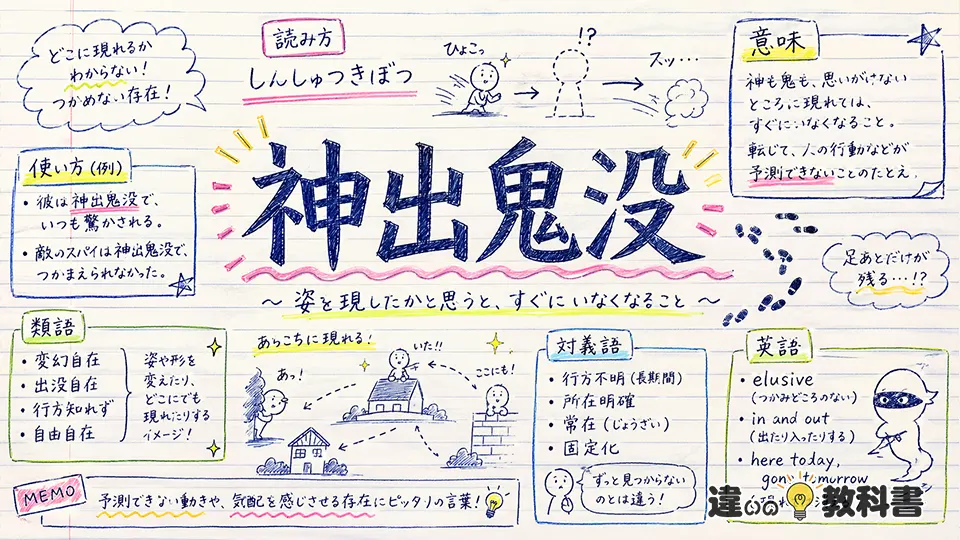 どこに現れるか
わからない!
つかめない存在!
読み方
しんしゅつきぼつ
ひょこっ
!?
スッ…
意味
神も鬼も、思いがけない
ところに現れては、
すぐにいなくなること。
転じて、人の行動などが
予測できないことのたとえ。
使い方(例)
・彼は神出鬼没で、
いつも驚かされる。
・敵のスパイは神出鬼没で、
つかまえられなかった。
神出鬼没
〜 姿を現したかと思うと、すぐに いなくなること 〜
足あとだけが
残る…!?
類語
・変幻自在
・出没自在
・行方知れず
・自由自在
姿や形を
変えたり、
どこにでも
現れたりする
イメージ!
あちこちに現れる!
あっ!
いた!!
ここにも!
対義語
・行方不明(長期間)
・所在明確
・常在(じょうざい)
・固定化
ずっと見つからない
のとは違う!
英語
・elusive
(つかみどころのない)
・in and out
(出たり入ったりする)
・here today,
MEMO
予測できない動きや、気配を感じさせる存在にピッタリの言葉!
違いの教科書